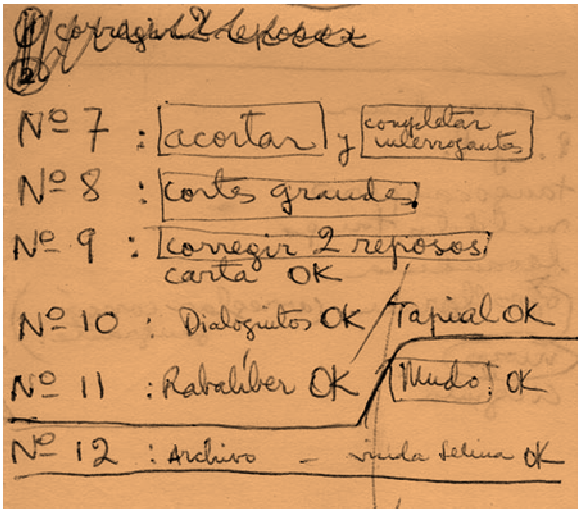 ① corregir 2 reposos
②
Nº 7 : acortar y completar interrogantes
Nº 8 : cortes grandes
Nº 9 : corregir 2 reposos
carta OK
Nº 10 : Dialoguitos OK / Tapial OK
Nº 11 : Rabaliber OK / Mudo: OK
Nº 12 : Archivo - viuda Selina OK